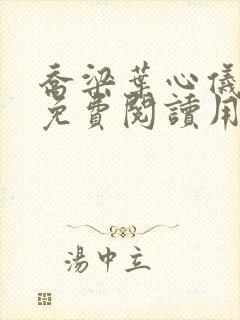 喬梁葉心儀
免費閱讀用
湯中立